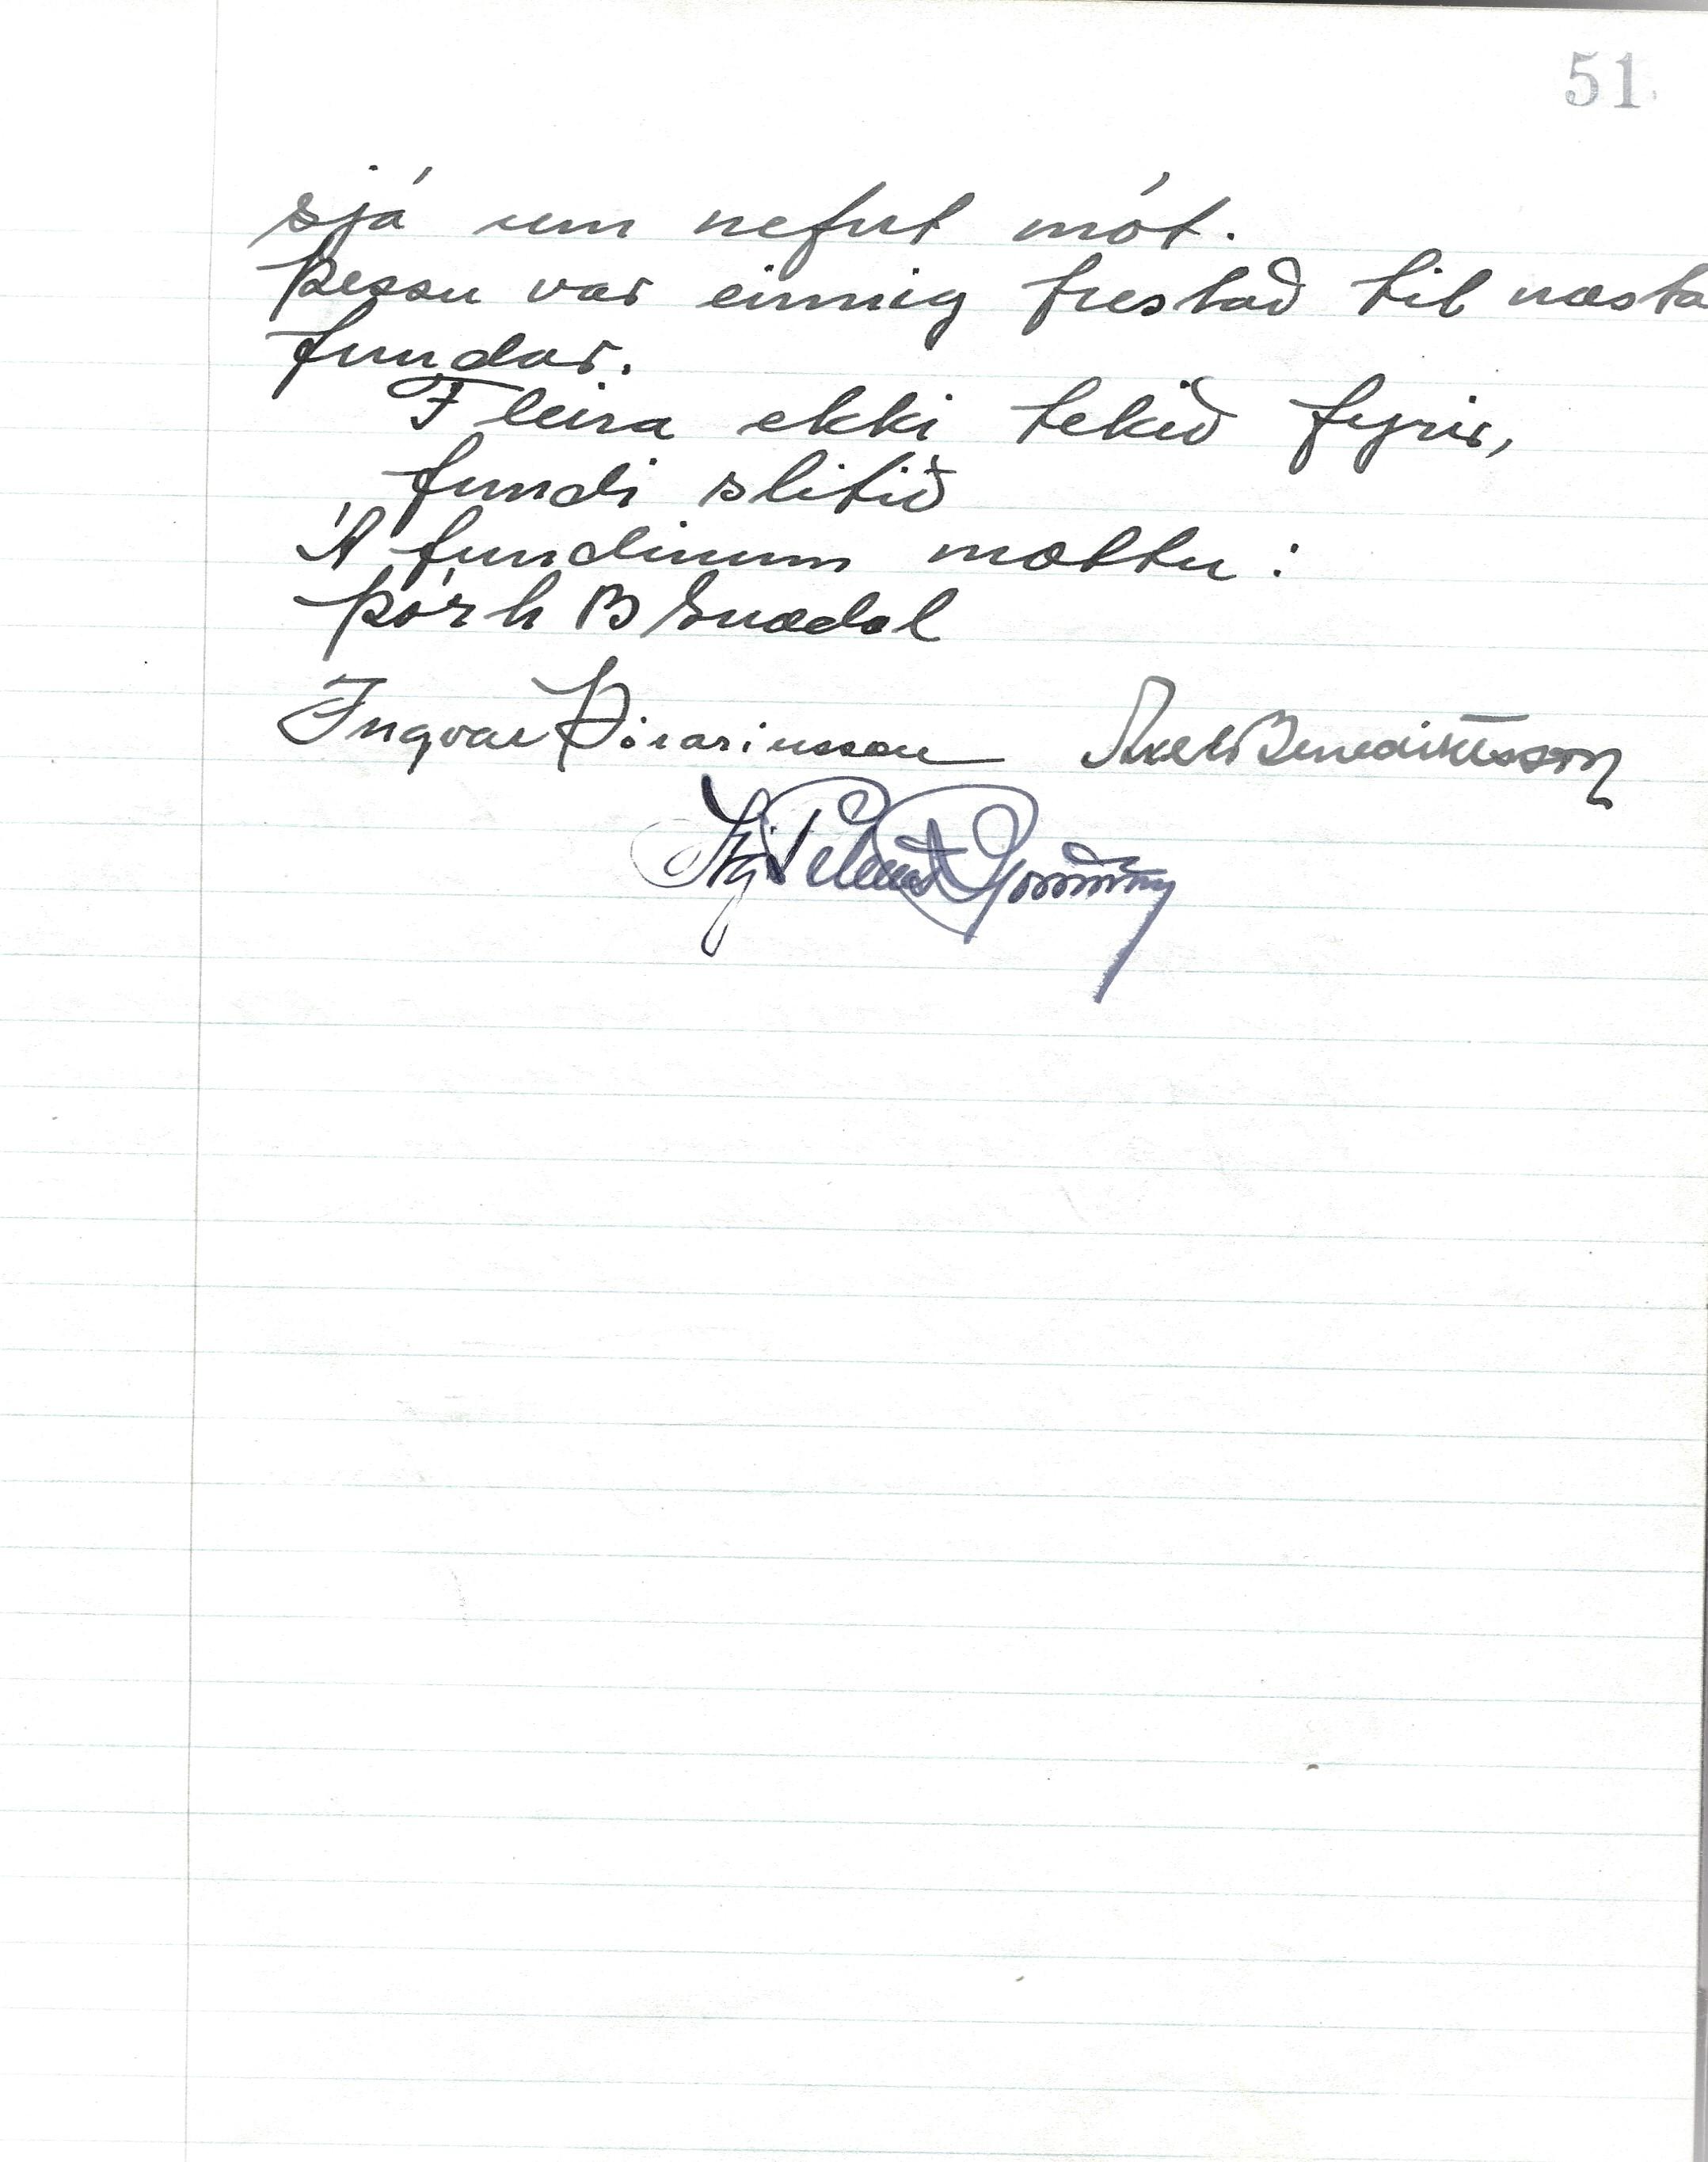 51
sjá um nefnt mót.
Þessu var einnig frestað til næsta
fundar.
Fleira ekki tekið fyrir,
fundi slitið
Á fundinum mættu:
Þórh B Snædal
Ingvar Þórarinsson Axel Benediktsson